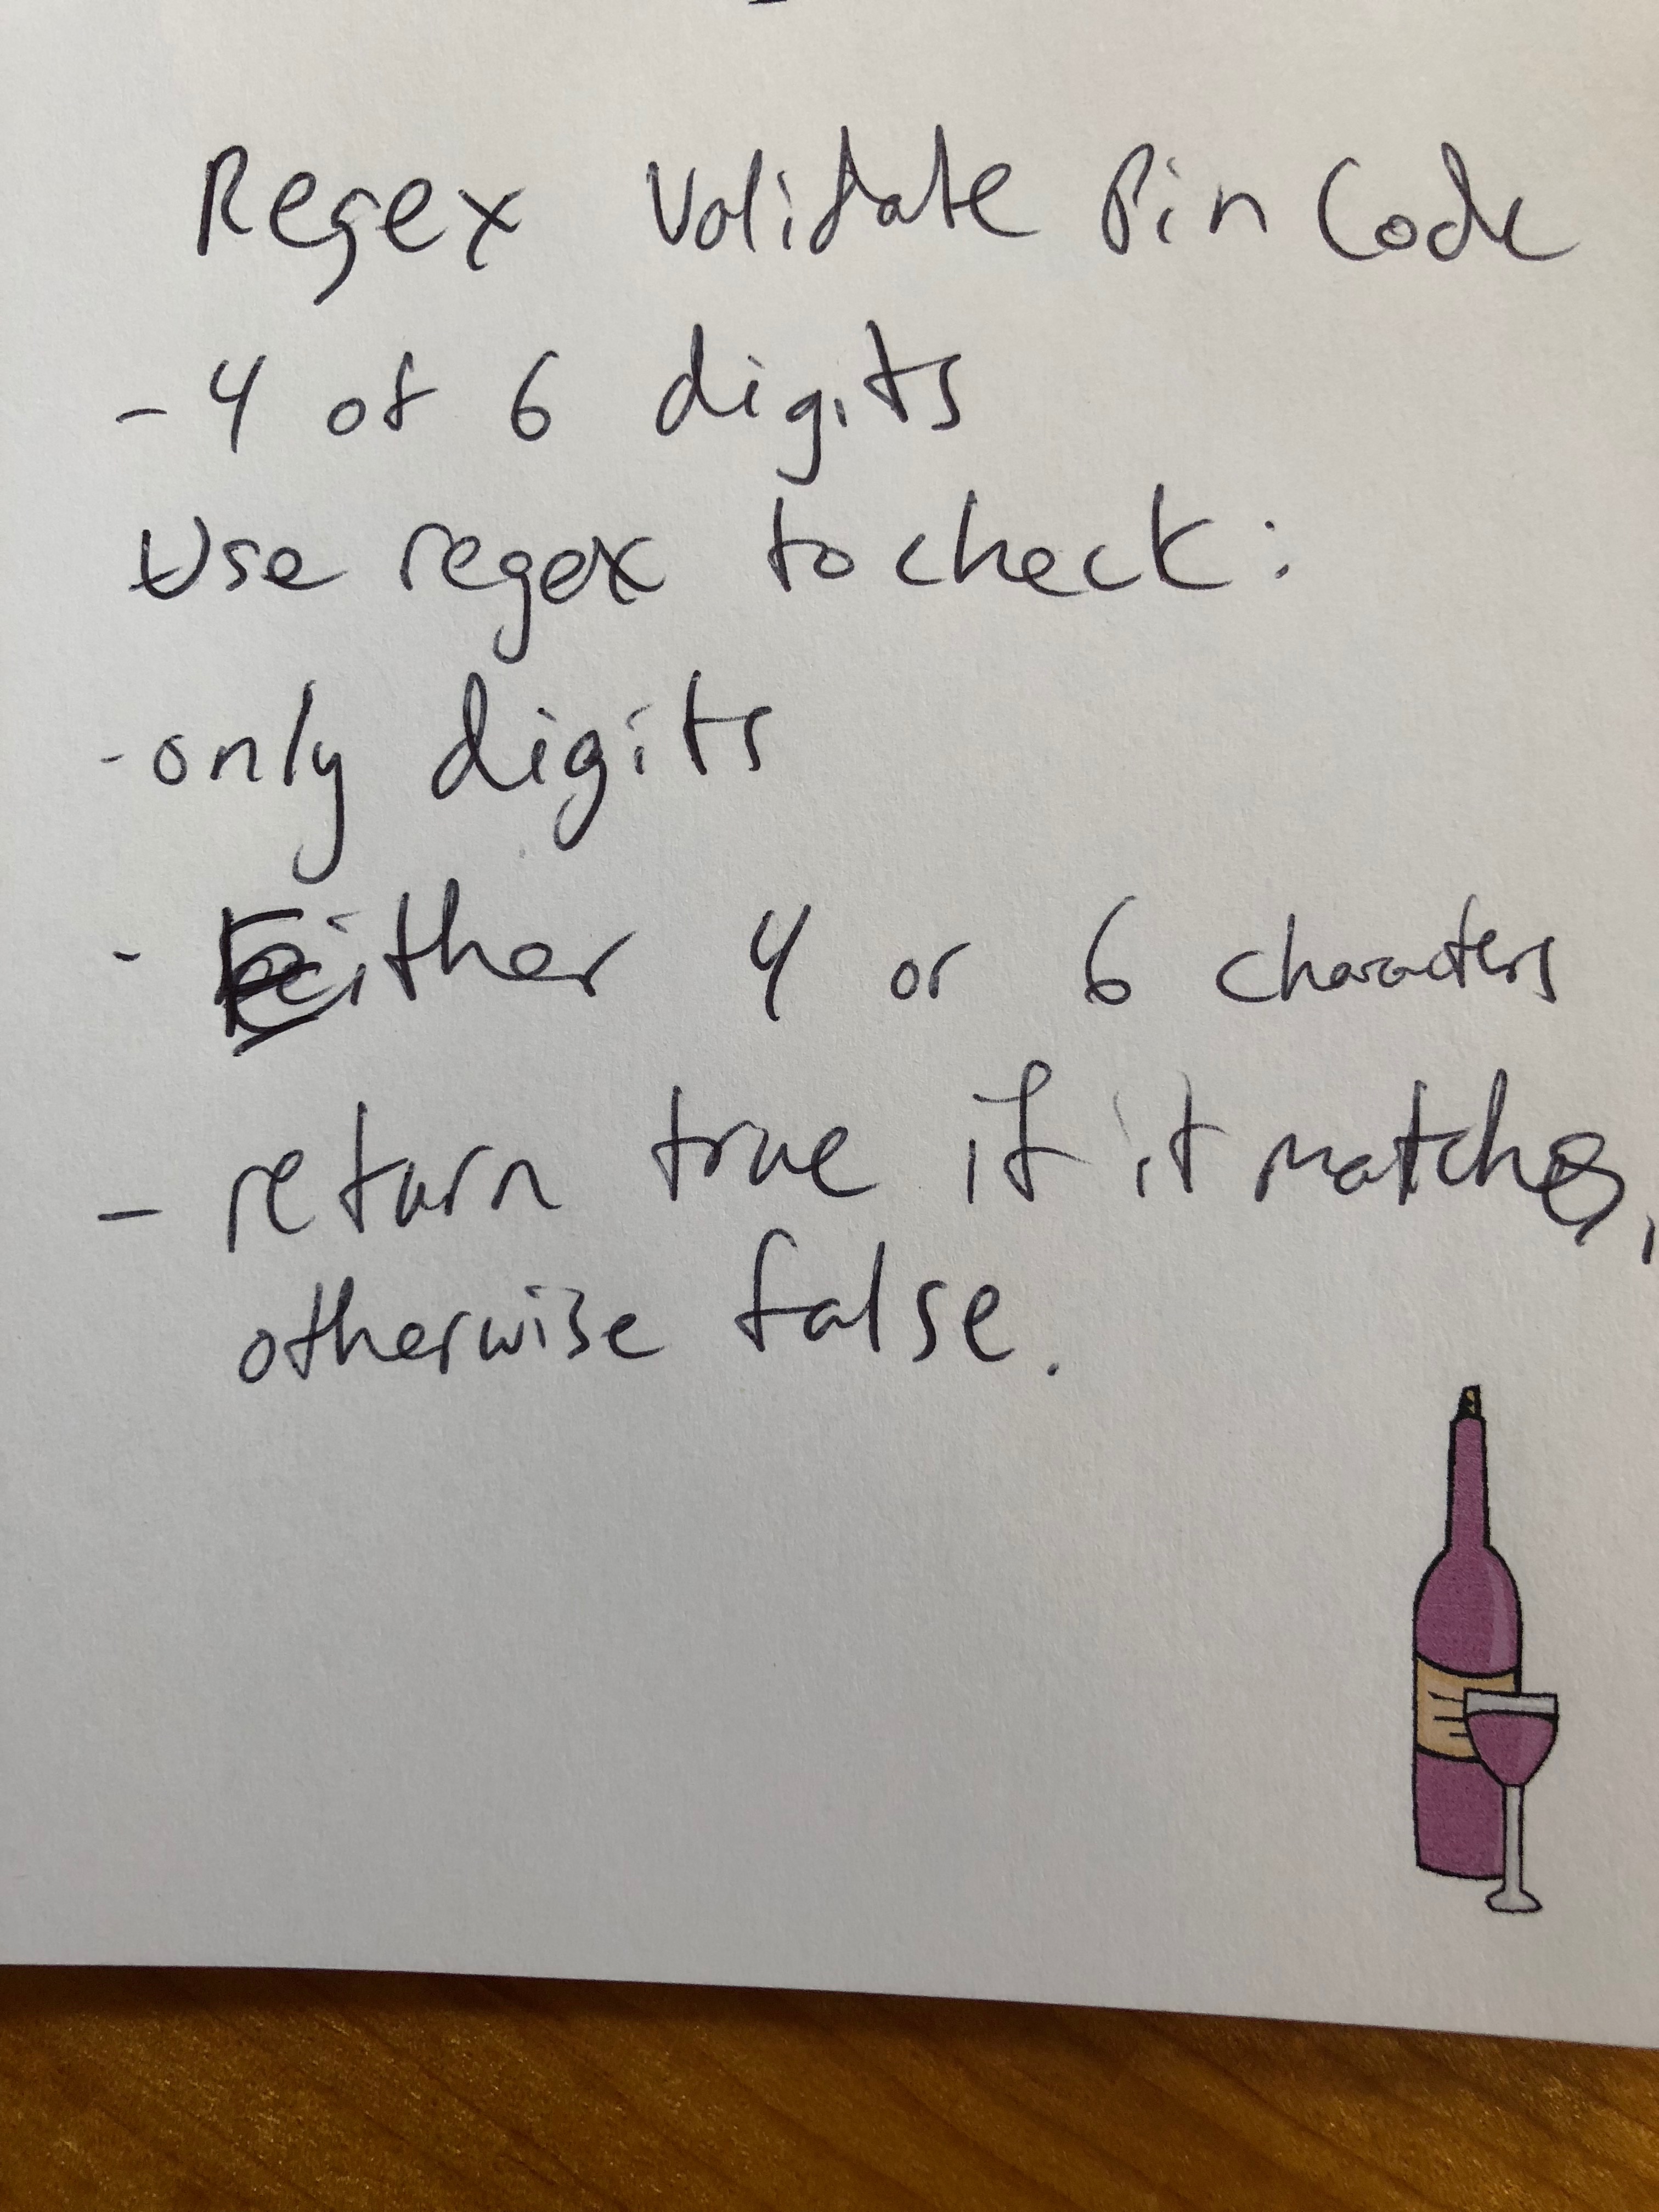 Regex Validate Pin Code
- 4 of 6 digits
Use regex to check:
- only digits
- Either 4 or 6 characters
- return true if it matches,
otherwise false.